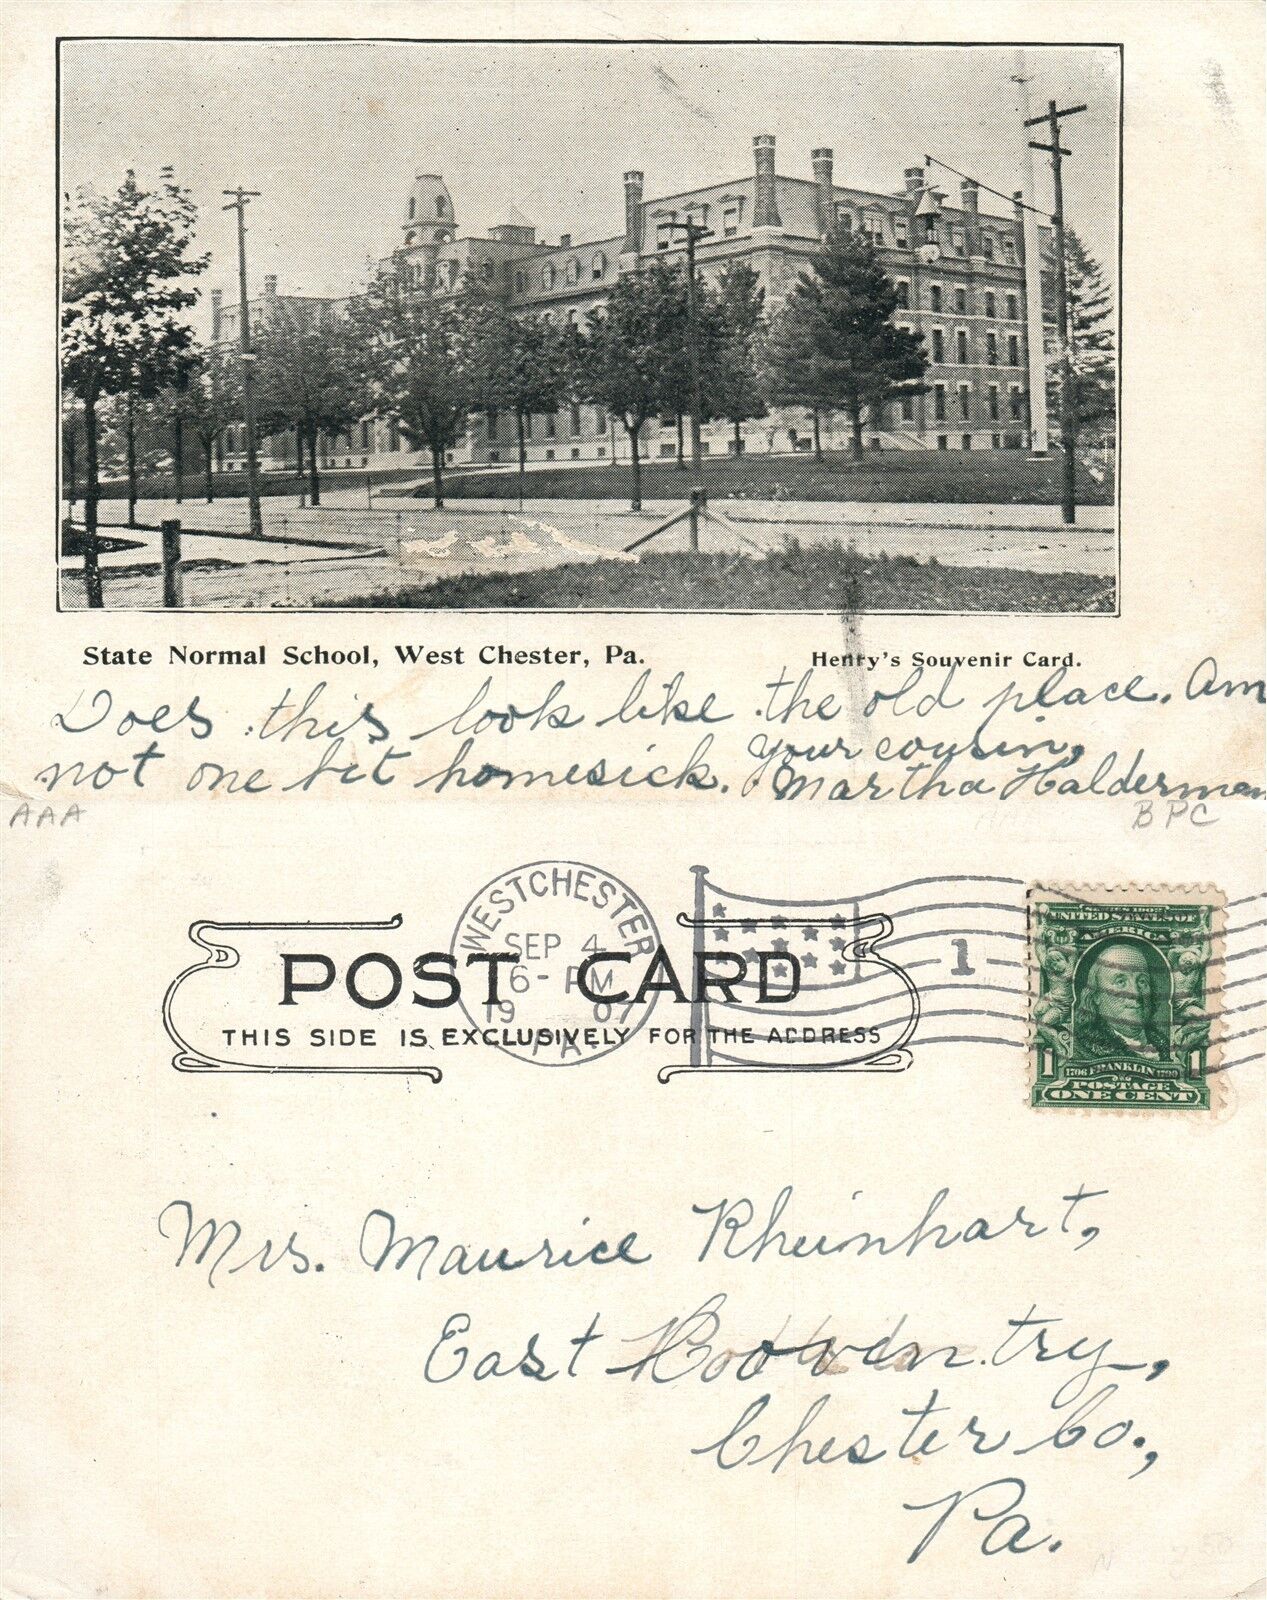 State Normal School, West Chester, Pa. Henry's Souvenir Card.
Does this look like the old place. Am
not one bit homesick. Your cousin,
Martha Halderman
AAA BPC
WESTCHESTER
SEP 4
6-PM
1907
PA.
1
POST CARD
THIS SIDE IS EXCLUSIVELY FOR THE ADDRESS
SERIES 1902
UNITED STATES OF
AMERICA
1 1706 FRANKLIN 1790 1
POSTAGE
ONE CENT
Mrs. Maurice Rheinhart,
East Coventry,
Chester Co.,
Pa.